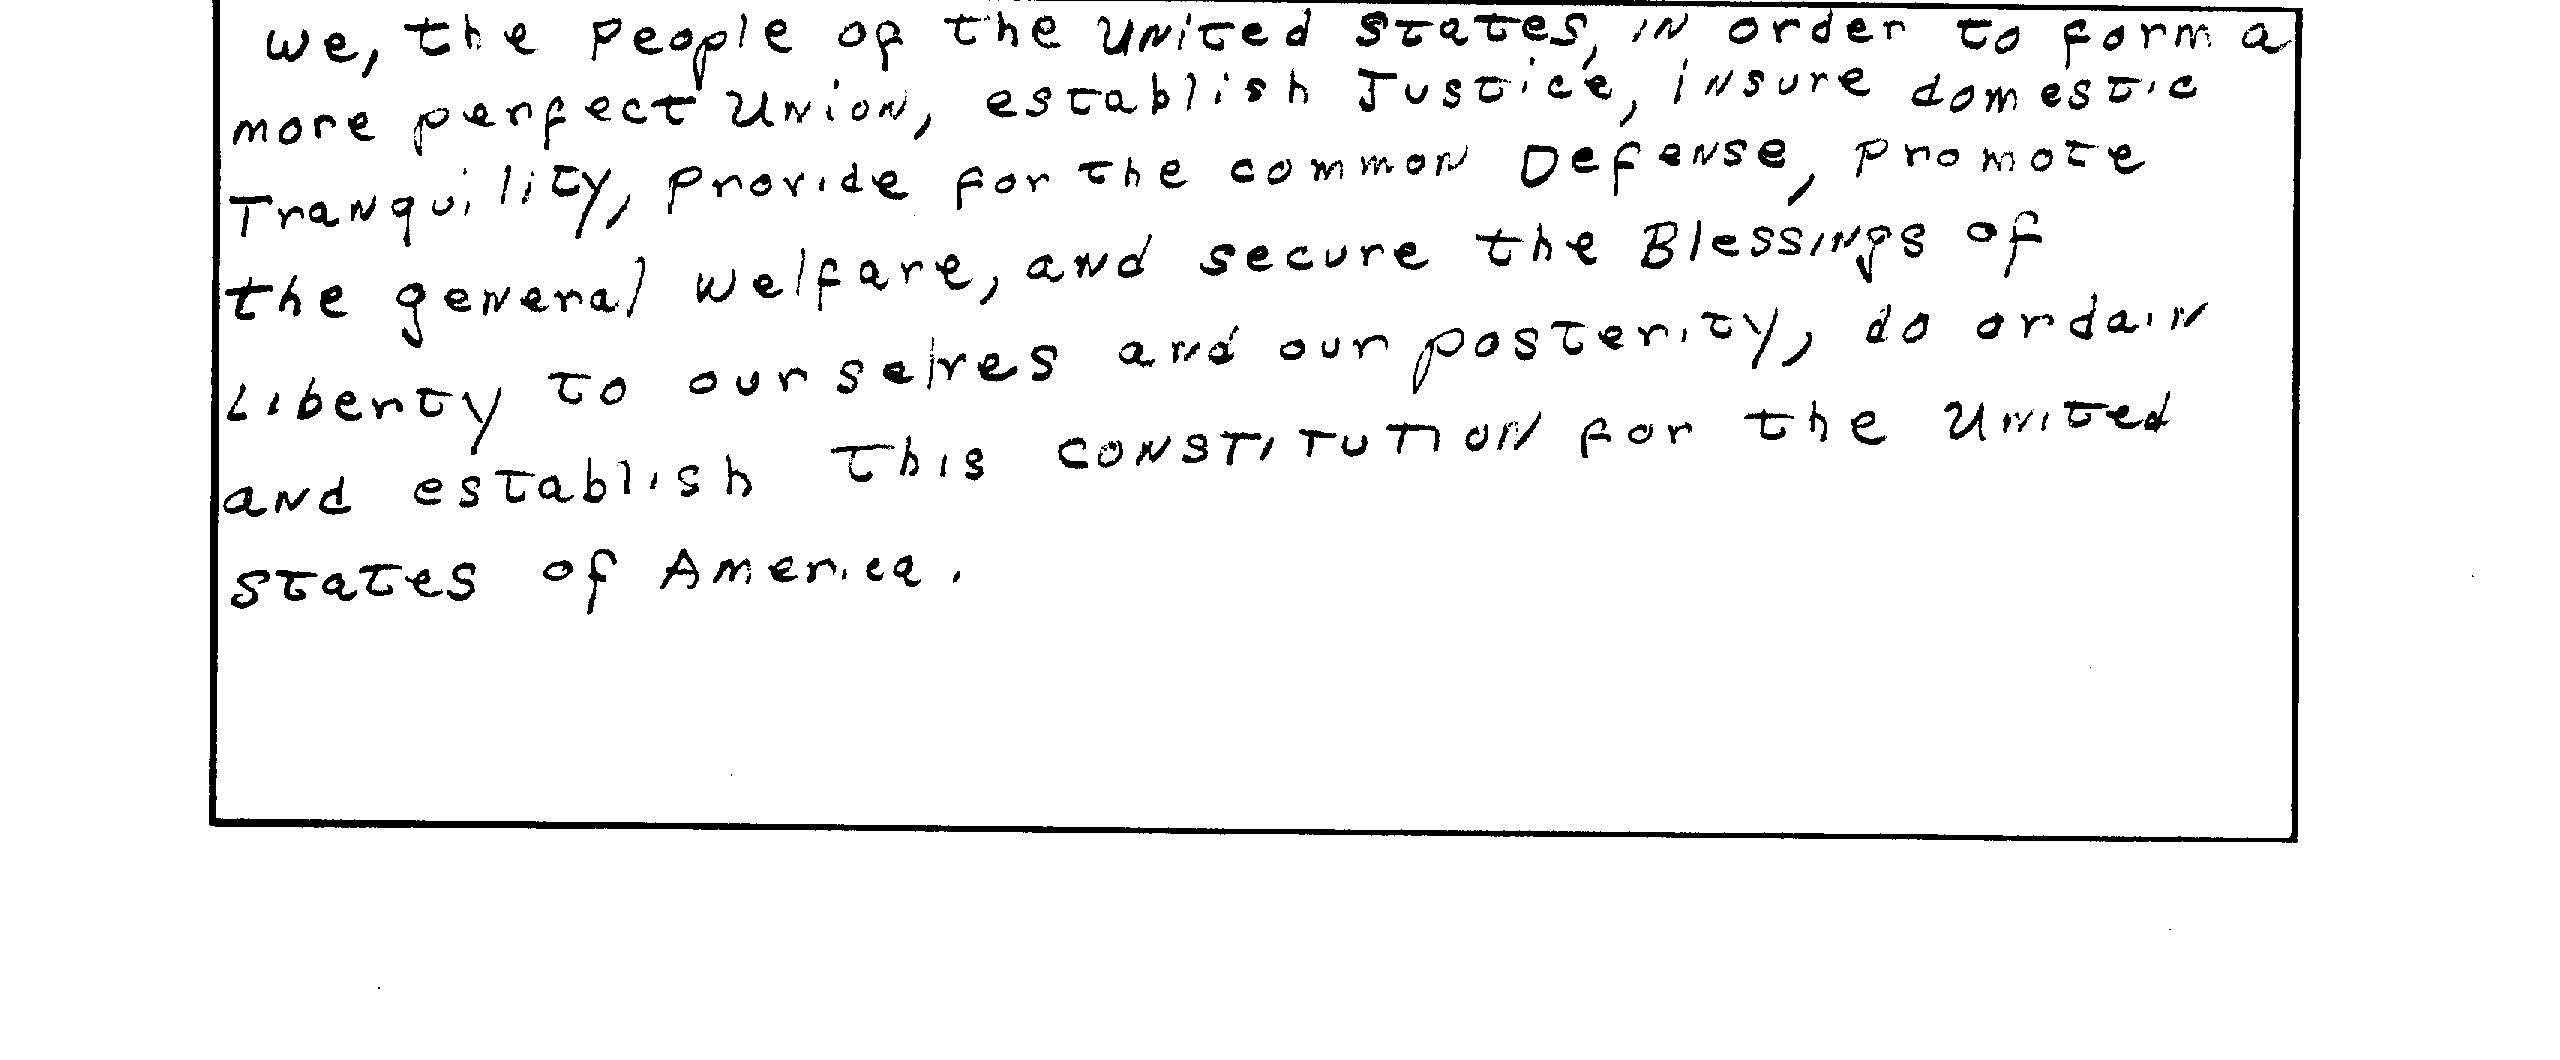 We, the People of the United States, in order to form a
more perfect Union, establish Justice, insure domestic
Tranquility, provide for the common Defense, promote
the general Welfare, and secure the Blessings of
Liberty to ourselves and our posterity, do ordain
and establish this CONSTITUTION for the United
States of America.